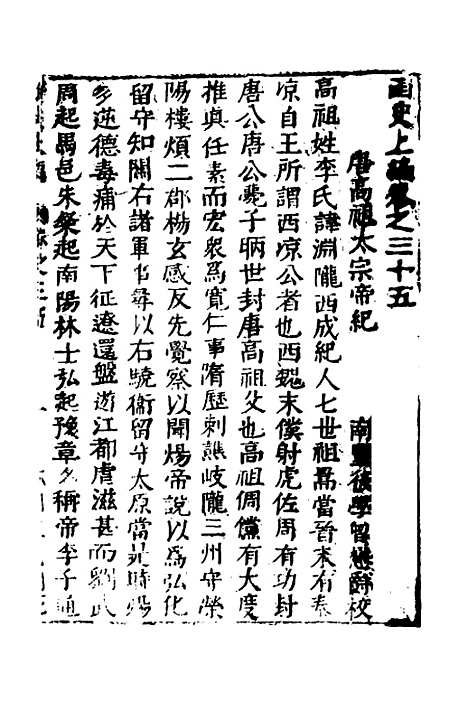 函史上編卷之三十五
唐高祖太宗帝紀
南豐後學曾懋爵校
高祖姓李氏諱淵隴西成紀人七世祖暠當晉末有秦
凉自王所謂西凉公者也西魏末僕射虎佐周有功封
唐公唐公薨子昞世封唐高祖父也高祖倜儻有大度
推真任素而宏衆爲寬仁事隋歷刺譙岐隴三州守榮
陽樓煩二郡楊玄感反先覺察以聞煬帝說以爲弘化
留守知關右諸軍事尋以右驍衞留守太原當是時煬
多逆德毒痡於天下征遼還盤遊江都虐滋甚而劉武
周起馬邑朱粲起南陽林士弘起豫章多稱帝李子通